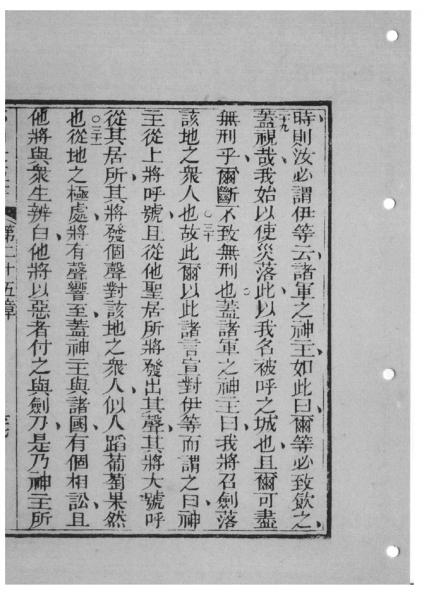 時則汝必謂伊等云諸軍之神主如此曰爾等必致飲之
二十九
蓋視哉我始以使災落此以我名被呼之城也且爾可盡
無刑乎爾斷不致無刑也蓋諸軍之神主曰我將召劍落
該地之衆人也故此爾以此諸言宣對伊等而謂之曰神
三十
主從上將呼號且從他聖居所將發出其聲其將大號呼
從其居所其將發個聲對該地之衆人似人蹈葡萄果然
三十一
也從地之極處將有聲響至蓋神主與諸國有個相訟且
他將與衆生辨白他將以惡者付之與劍刀是乃神主所
第二十五章